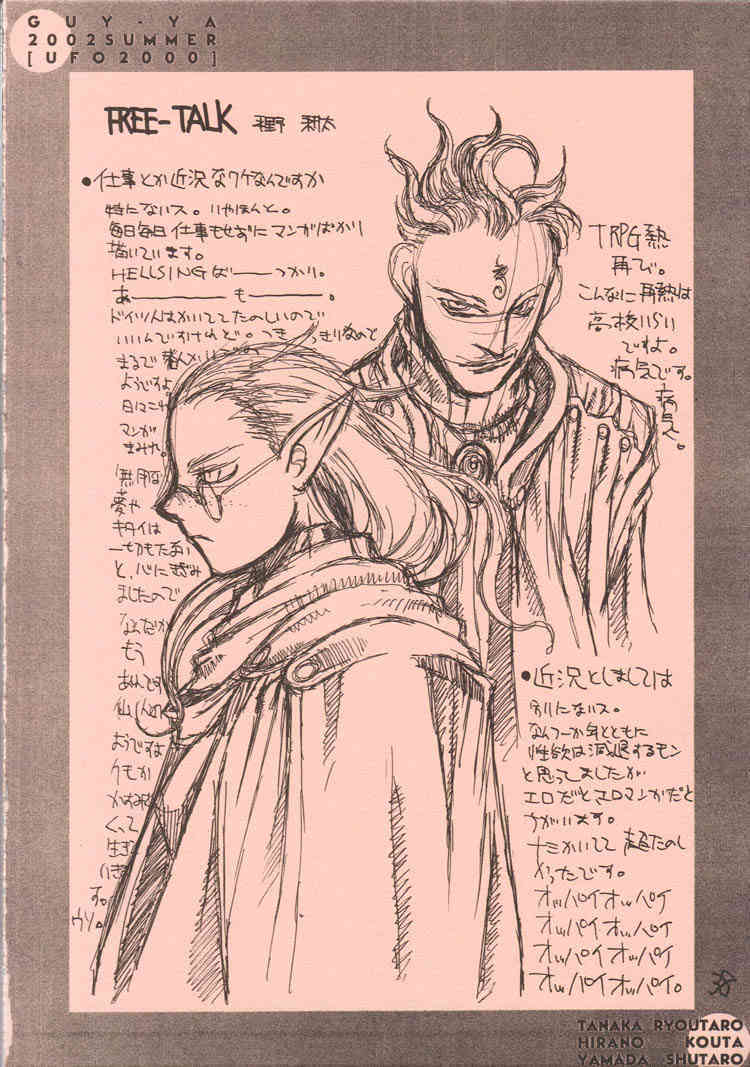 GUY-YA
2002SUMMER
[UFO2000]
FREE-TALK 平野 耕太
●仕事とか近況なワケなんですか
特にないス。いやほんと。
毎日毎日仕事もせずにマンガばかり
描いています。
HELLSINGば——っかり。
あ———も———。
ドイツ人はかいててたのしいので
いいんですけれど。
まるで
ようですよ
日々これ
マンガ
まみれ。
夢や
キタイは
一切もたない
と、心に
ましたので
なんだか
もう
ようですよ
クモか
くって
生き
す。
ウソ。
TRPG熱
再び。
こんなに再熱は
高校いらい
ですよ。
病気です。
病気。
●近況としましては
別にないス。
なんつーか年とともに
性欲は減退するモン
と思ってましたが
エロだとエロマンガだと
ちがいます。
ナミかいてて 超たのし
かったです。
オッパイオッパイ
オッパイオッパイ
オッパイオッパイ
オッパイオッパイ。
TANAKA RYOUTARO
HIRANO KOUTA
YAMADA SHUTARO